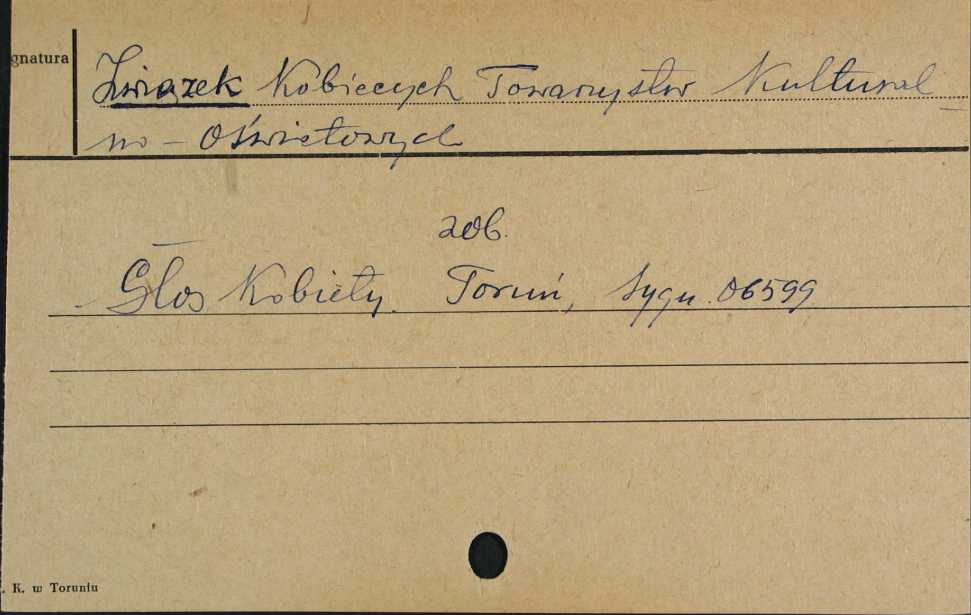 gnatura
Związek Kobiecych Towarzystw Kultural
no - Oświatowych
zob.
Głos Kobiety. Toruń, Sygn. 06599
. K. w Toruniu